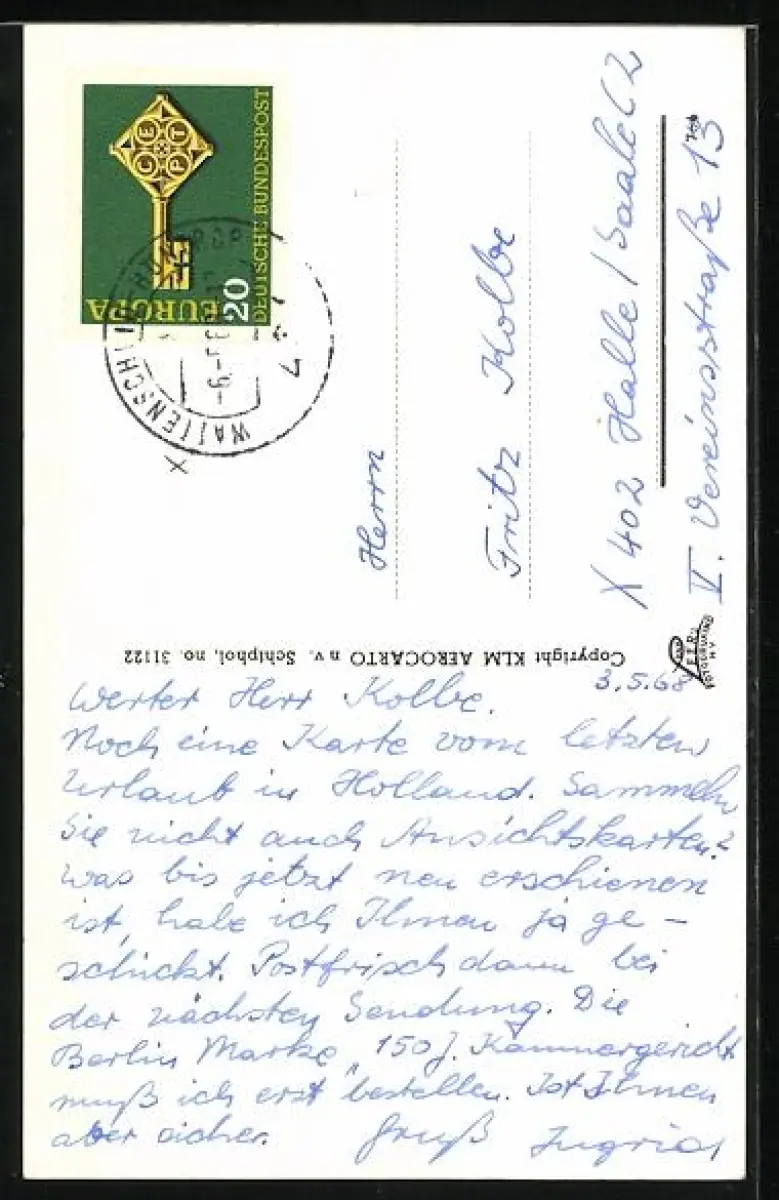 EUROPA
20
DEUTSCHE BUNDESPOST
CEPT
WATTENSCHEID
Herrn
Fritz Kolbe
X 402 Halle/Saale (2
V. Vereinsstraße 13
Copyright KLM AEROCARTO n.v. Schiphol, no. 31122
3.5.68
Werter Herr Kolbe.
Noch eine Karte vom letzten
Urlaub in Holland. Sammeln
Sie nicht auch Ansichtskarten?
Was bis jetzt neu erschienen
ist, habe ich Ihnen ja ge-
schickt. Postfrisch dann bei
der nächsten Sendung. Die
Berlin Marke „150 J. Kammergericht
muß ich erst bestellen. Ist Ihnen
aber sicher. Gruß Ingrid